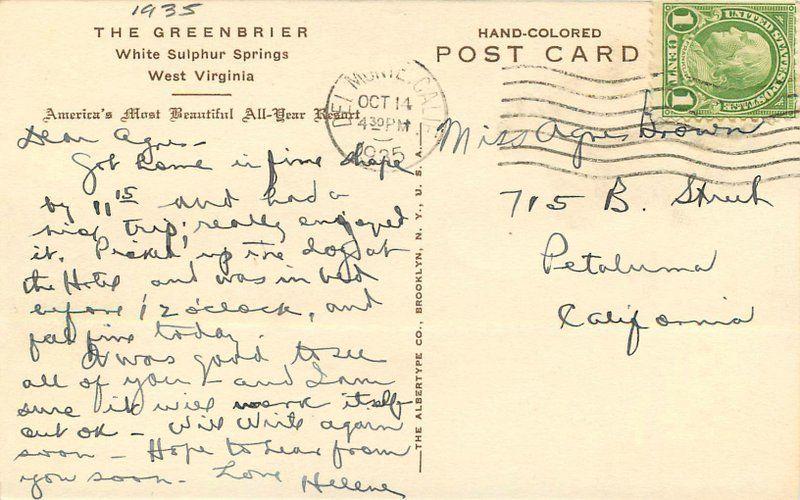 1935
THE GREENBRIER
White Sulphur Springs
West Virginia
America's Most Beautiful All-Year Resort
Dear Agnes -
Got home in fine shape
by 11 15 and had a
nice trip, really enjoyed
it. Picked up the dog at
the Hotel and was in bed
before 12 o'clock, and
feel fine today.
It was good to see
all of you - and I am
sure it will work itself
out OK - Will write again
soon - Hope to hear from
you soon. Love Helene
THE ALBERTYPE CO., BROOKLYN, N. Y., U. S. A.
HAND-COLORED
POST CARD
DEL MONTE, CALIF.
OCT 14
4 30 PM
1935
1 CENT 1
UNITED STATES POSTAGE
FRANKLIN
Miss Agnes Brown
715 B. Street
Petaluma
California